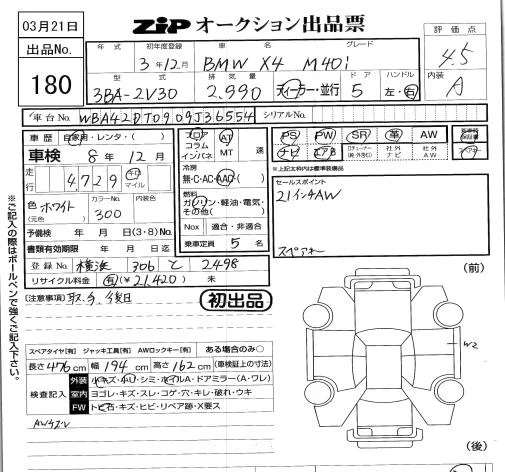 03月21日
ZIP オークション出品票
出品No.
180
年式 初年度登録 車名 グレード
3年12月 BMW X4 M40i
型式 排気量 ドア ハンドル
3BA-2V30 2,990 ディーラー・並行 5 左・右
評価点
4.5
内装
A
車台No. WBA42DT0909J36554 シリアルNo.
車歴 自家用・レンタ・( )
車検 8年12月
走行 4,729 千キロ マイル
色 ホワイト (元色) カラーNo. 300 内装色
予備検 年 月 日(3・8)No.
書類有効期限 年 月 日
登録No. 横浜 306 と 2498
リサイクル料金 有(¥21,420) 未
フロア コラム インパネ
AT MT 速
冷房
無・C・AC・AAC・( )
燃料
ガソリン・軽油・電気・その他( )
Nox 適合・非適合
乗車定員 5 名
PS PW SR 革 AW
ナビ エアB 社外ナビ 社外AW
※上記太枠内は標準装備品
セールスポイント
21インチAW
スペアキー
[注意事項] 取・分 後日
初出品
※ご記入の際はボールペンで強くご記入下さい。
スペアタイヤ[有] ジャッキ工具[有] AWロックキー[有] ある場合のみ○
長さ476cm 幅194cm 高さ162cm (車検証上の寸法)
検査記入
外装 小キズ・小U・シミ・ホイルA・ドアミラー(A・ワレ)
室内 ヨゴレ・キズ・スレ・コゲ・穴・キレ・破れ・ウキ
FW トビ石・キズ・ヒビ・リペア跡・X要ス
(前)
W2
(後)